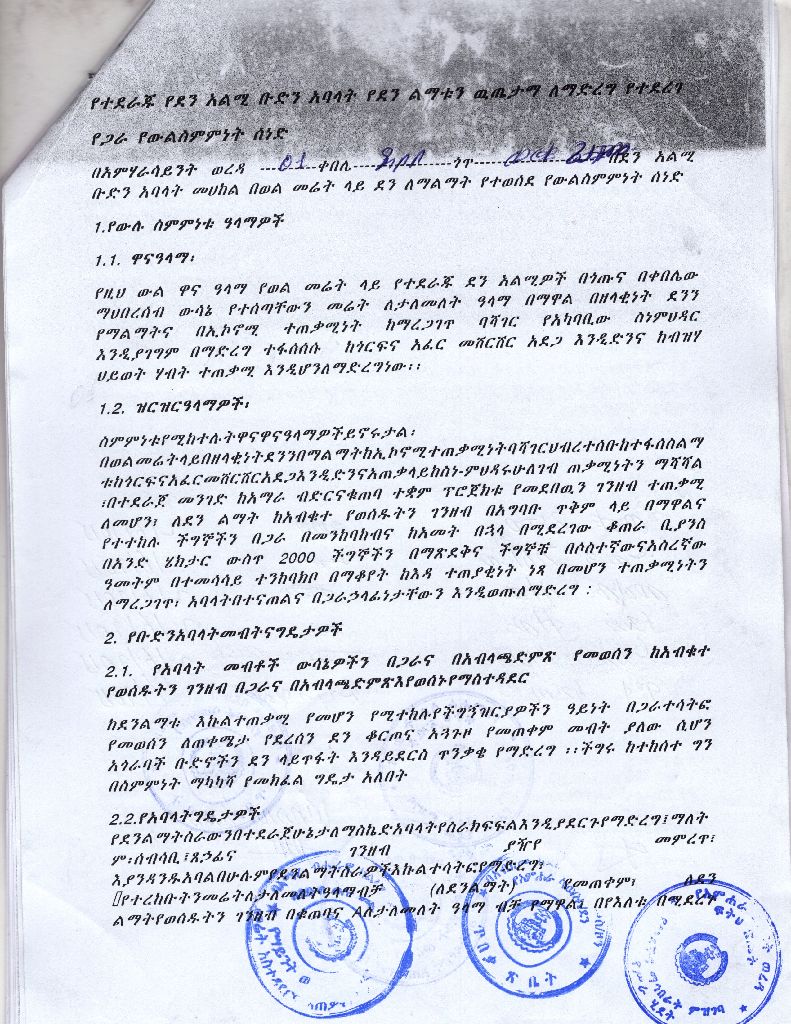 የተደራጁ የደን አልሚ ቡድን አባላት የደን ልማቱን ዉጤታማ ለማድረግ የተደረገ
የጋራ የውልስምምነት ሰነድ
በአምሃራሳይንት ወረዳ 01 ቀበሌ ጎጥ በደን አልሚ
ቡድን አባላት መሀከል በወል መሬት ላይ ደን ለማልማት የተወሰደ የውልስምምነት ሰነድ
1.የውሉ ስምምነቱ ዓላማዎች
1.1. ዋናዓላማ፡
የዚህ ውል ዋና ዓላማ የወል መሬት ላይ የተደራጁ ደን አልሚዎች በጎጡና በቀበሌው
ማህበረሰብ ውሳኔ የተሰጣቸውን መሬት ለታለመለት ዓላማ በማዋል በዘላቂነት ደንን
የማልማትና በኢኮኖሚ ተጠቃሚነት ከማረጋገጥ ባሻገር የአካባቢው ስነምህዳር
እንዲያገግም በማድረግ ተፋሰሰሱ ከጎርፍና አፈር መሸርሸር አደጋ እንዲድንና ከብዝሃ
ህይወት ሃብት ተጠቃሚ እንዲሆንለማድረግነው፡፡
1.2. ዝርዝርዓላማዎች፡
ስምምነቱየሚከተሉትዋናዋናዓላማዎችይኖሩታል፡
በወልመሬትላይበዘላቂነትደንንበማልማትከኢኮኖሚተጠቃሚነትባሻገርህብረተሰቡከተፋሰስልማ
ቱከጎርፍናአፈርመሸርሸርአደጋእንዲድንናአጠቃላይከስነ-ምህዳሩሁለገብ ጠቃሚነትን ማሻሻል
፣በተደራጀ መንገድ ከአማራ ብድርናቁጠባ ተቋም ፕሮጀክቱ የመደበዉን ገንዘብ ተጠቃሚ
ለመሆን፣ ለደን ልማት ከአብቁተ የወሰዱትን ገንዘብ በአግባቡ ጥቅም ላይ በማዋልና
የተተከሉ ችግኞችን በጋራ በመንከባከብና ከአመት በኋላ በሚደረገው ቆጠራ ቢያንስ
በአንድ ሄክታር ውስጥ 2000 ችግኞችን በማጽደቅና ችግኞቹ በሶስተኛውናአስረኛው
ዓመትም በተመሳሳይ ተንከባክቦ በማቆየት ከእዳ ተጠያቂነት ነጻ በመሆን ተጠቃሚነትን
ለማረጋገጥ፣ አባላትበተናጠልና በጋራኃላፊነታቸውን እንዲወጡለማድረግ ፡
2. የቡድንአባላትመብትናግዴታዎች
2.1. የአባላት መብቶች ውሳኔዎችን በጋራና በአብላጫድምጽ የመወሰን ከአብቁተ
የወሰዱትን ገንዘብ በጋራና በአብላጫድምጽእየወሰኑየማስተዳደር
ከደንልማቱ እኩልተጠቃሚ የመሆን የሚተከሉየችግኝዝርያዎችን ዓይነት በጋራተሳትፎ
የመወሰን ለጠቀሜታ የደረሰን ደን ቆርጦና አጓጉዞ የመጠቀም መብት ያለው ሲሆን
አጎራባች ቡድኖችን ደን ላይጥፋት እንዳይደርስ ጥንቃቄ የማድረግ ፡፡ችግሩ ከተከሰተ ግን
በስምምነት ማካካሻ የመክፈል ግዴታ አለበት
2.2.የአባላትግዴታዎች
የደንልማትስራውንበተደራጀሁኔታለማስኬድአባላትየስራክፍፍልእንዲያደርጉየማድረግ፣ማለት
ም፡ሰብሳቢ፣ጸኃፊና ገንዘብ ያዥየ መምረጥ፣
እያንዳንዱአባልበሁሉምየደንልማትስራዎችእኩልተሳትፎየማድረግ፣
የተረከቡትንመሬትለታለመለትዓላማብቻ (ለደንልማት) የመጠቀም፣ ለደን
ልማትየወሰዱትን ገንዘብ በቁጠባና Aለታለመለት ዓላማ ብቻ የማዋል፣ በየእለቱ በሚደረግ
ጥበቃ ጽ ቤት